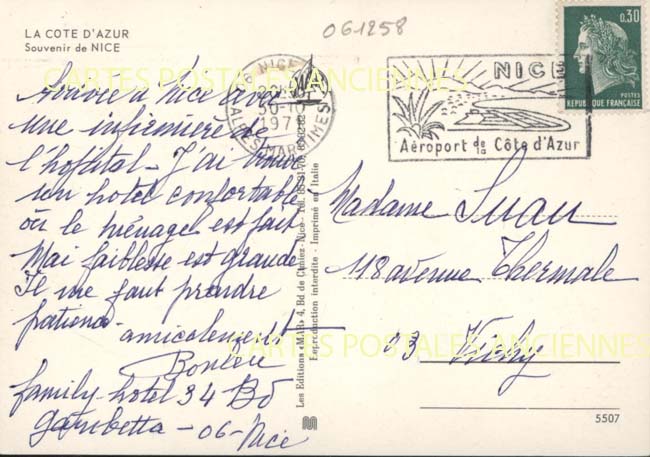 061258
LA COTE D'AZUR
Souvenir de NICE
NICE
30-10
197
ALPES MARITIMES
NICE
Aéroport de la Côte d'Azur
0,30
POSTES
REPUBLIQUE FRANÇAISE
CARTES POSTALES ANCIENNES
Arrivée à Nice avec
une infirmière de
l'hôpital - J'ai trouvé
un hotel confortable
où le ménage est fait
Mai faiblesse est grande
Il me faut prendre
patience -
amicalement
family-hotel 34 Bd
gambetta - 06 - Nice
Les Editions «MAR» 4, Bd de Cimiez - Nice - Tél.
Reproduction interdite - Imprimé en Italie
Madame Luau
118 avenue Thermale
03 Vichy
CARTES POSTALES ANCIENNES
5507